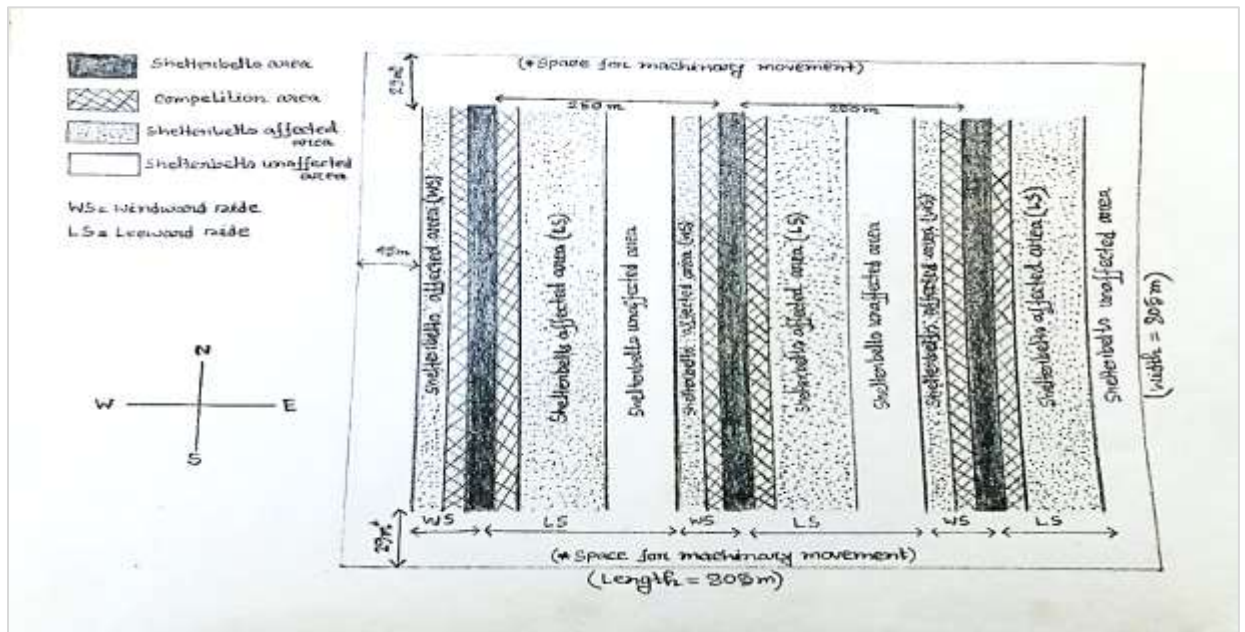 Shelterbelts area
Competition area
Shelterbelts affected
area
Shelterbelts unaffected
area
WS= Windward side
LS= Leeward side
N
W
E
S
(*Space for machinary movement)
250m
Shelterbelts affected area (WS)
Shelterbelts affected area (LS)
Shelterbelts unaffected area
Shelterbelts affected area (WS)
Shelterbelts affected area (LS)
Shelterbelts unaffected area
Shelterbelts affected area (WS)
Shelterbelts affected area (LS)
Shelterbelts unaffected area
WS
LS
WS
LS
WS
LS
(*Space for machinary movement)
(Length = 805m)
(Width = 805m)